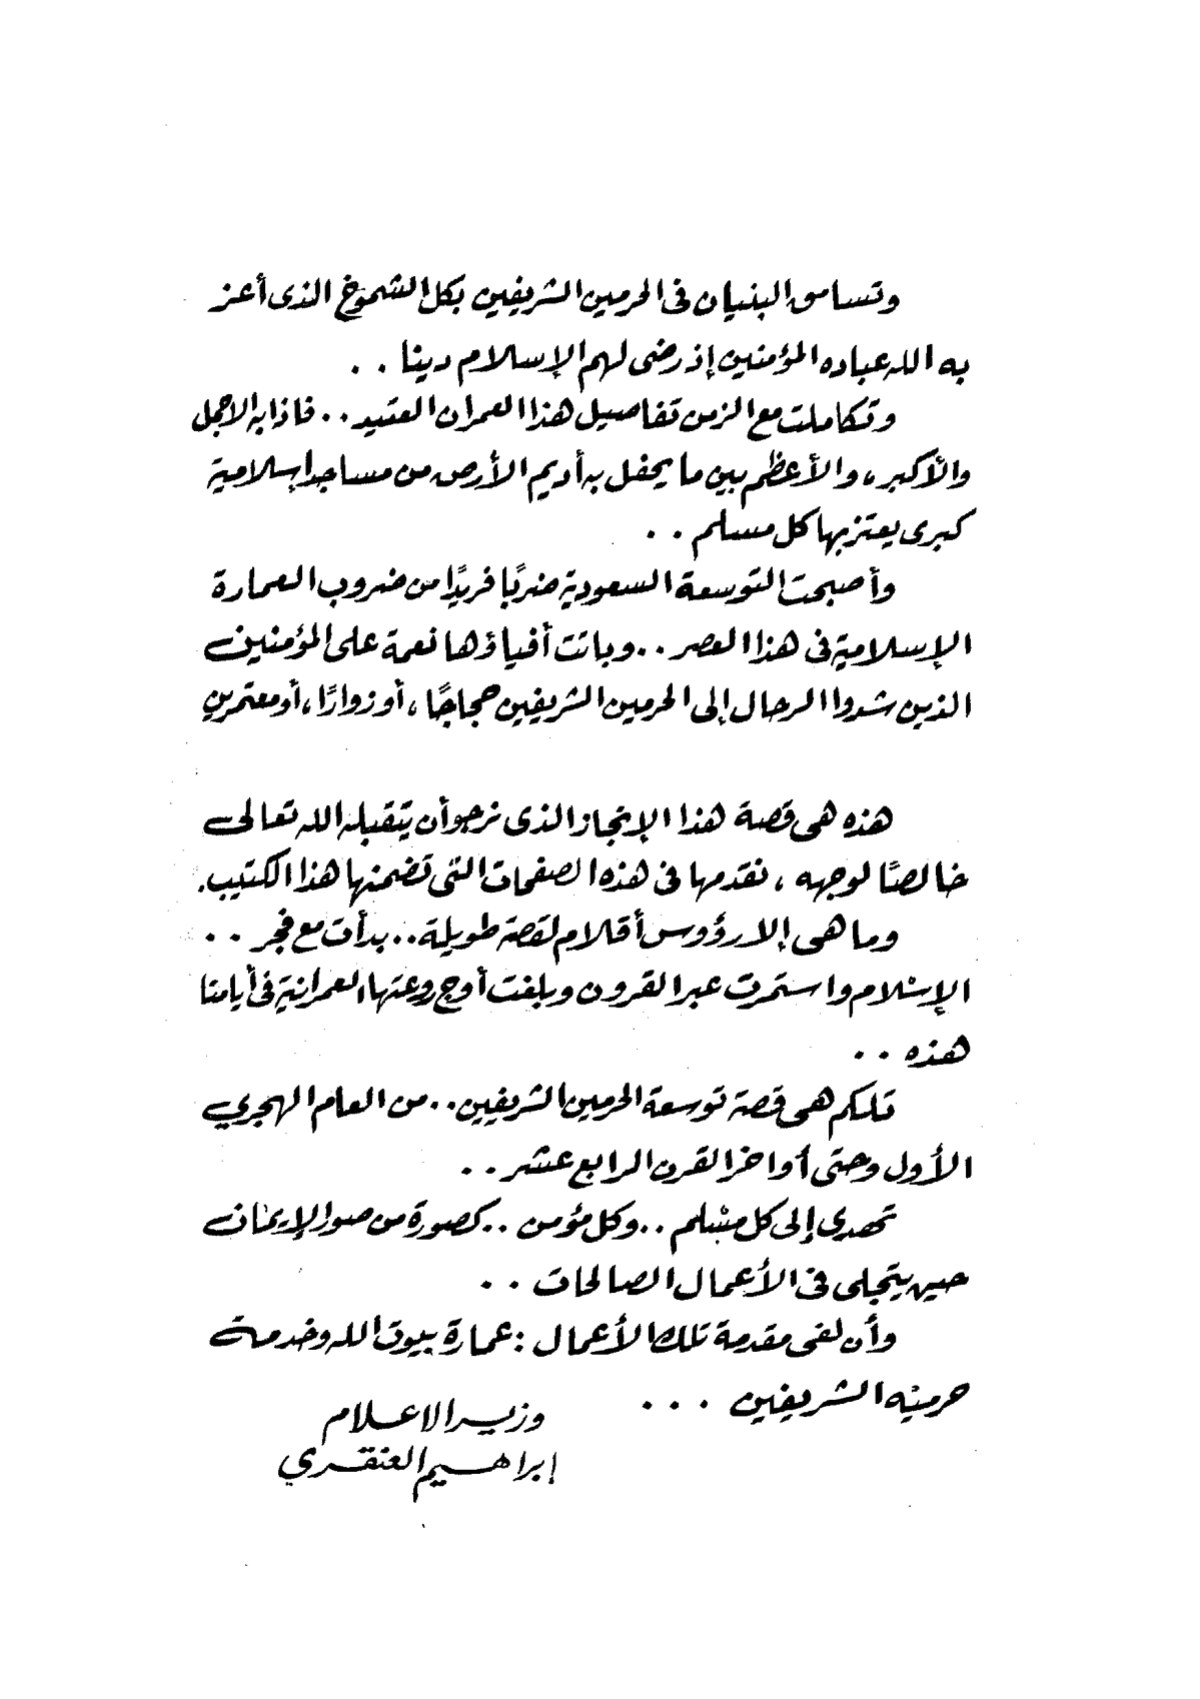 وتسامق البنيان فى الحرمين الشريفين بكل الشموخ الذى أعز
به الله عباده المؤمنين إذ رضى لهم الإسلام دينا . .
وتكاملت مع الزمن تفاصيل هذا العمران العتيد . . فاذا به الاجمل
والأكبر، والأعظم بين ما يحفل به أديم الأرض من مساجد إسلامية
كبرى يعتز بها كل مسلم . .
وأصبحت التوسعة السعودية ضربًا فريدًا من ضروب العمارة
الإسلامية فى هذا العصر . . وباتت أفياؤها نعمة على المؤمنين
الذين شدوا الرحال إلى الحرمين الشريفين حجاجًا، أو زوارًا، أو معتمرين
هذه هى قصة هذا الإنجاز الذى نرجو أن يتقبله الله تعالى
خالصًا لوجهه ، نقدمها فى هذه الصفحات التى تضمنها هذا الكتيب.
وما هى إلا رؤوس أقلام لقصة طويلة . . بدأت مع فجر . .
الإسلام واستمرت عبر القرون وبلغت أوج روعتها العمرانية فى أيامنا
هذه . .
تلكم هى قصة توسعة الحرمين الشريفين . . من العام الهجري
الأول وحتى أواخر القرن الرابع عشر . .
تهدى إلى كل مسلم . . وكل مؤمن . . كصورة من صور الإيمان
حين يتجلى فى الأعمال الصالحات . .
وأن لفى مقدمة تلك الأعمال : عمارة بيوت الله وخدمة
حرميه الشريفين . . .
وزير الاعلام
إبراهيم العنقري